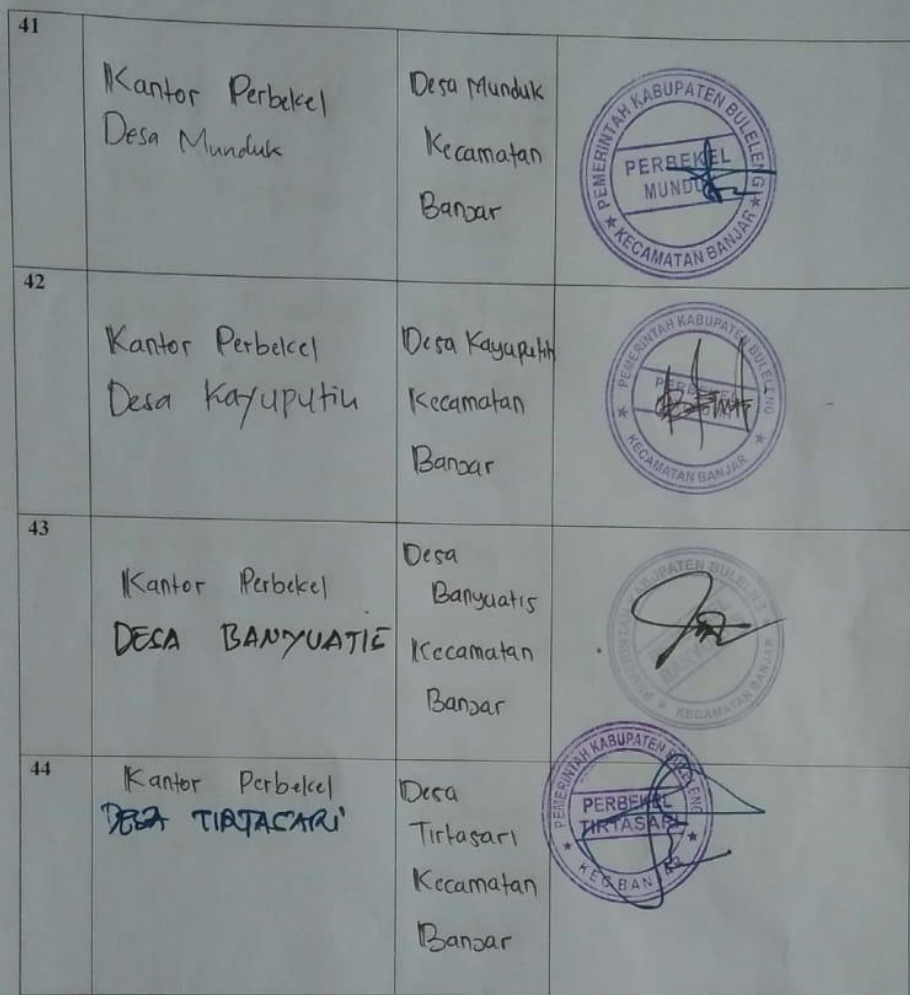 41
Kantor Perbekel
Desa Munduk
Desa Munduk
Kecamatan
Banjar
PEMERINTAH KABUPATEN BULELENG
PERBEKEL
MUNDUK
KECAMATAN BANJAR
42
Kantor Perbekel
Desa Kayuputih
Desa Kayuputih
Kecamatan
Banjar
PEMERINTAH KABUPATEN BULELENG
KECAMATAN BANJAR
43
Kantor Perbekel
DESA BANYUATIS
Desa
Banyuatis
Kecamatan
Banjar
KABUPATEN BULELENG
KECAMATAN BANJAR
44
Kantor Perbekel
DESA TIRTASARI
Desa
Tirtasari
Kecamatan
Banjar
PEMERINTAH KABUPATEN BULELENG
PERBEKEL
TIRTASARI
KEC BANJAR